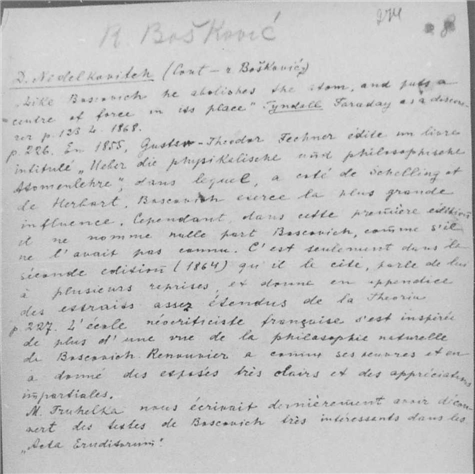 R. Bošković
274
8
D. Nedelkovitch (Cont - r Bošković)
„Like Boscovich he abolishes the atom, and puts a
centre of force in its place" Tyndall Faraday as a discove-
rer p. 123 4. 1868.
p. 226. En 1855, Gustav-Theodor Fechner édite un livre
intitulé „Ueber die physikalische und philosophische
Atomenlehre", dans lequel, a coté de Schelling et
de Herbart, Boscovich exerce la plus grande
influence. Cependant, dans cette première édition
il ne nomme nulle part Boscovich, comme s'il
ne l'avait pas connu. C'est seulement dans la
séconde edition (1864) qu'il le cite, parle de lui
à plusieurs reprises et donne en appendice
des extraits assez étendus de la Theoria
p. 227. L'école néocriticiste française s'est inspirée
de plus d'une vue de la philosophie naturelle
de Boscovich Renouvier a comme ses œuvres et en
a donné des exposés très clairs et des appréciations
impartiales.
M. Truhelka nous écrivait dernièrement avoir décou-
vert des textes de Boscovich très intéressants dans les
„Acta Eruditorum"